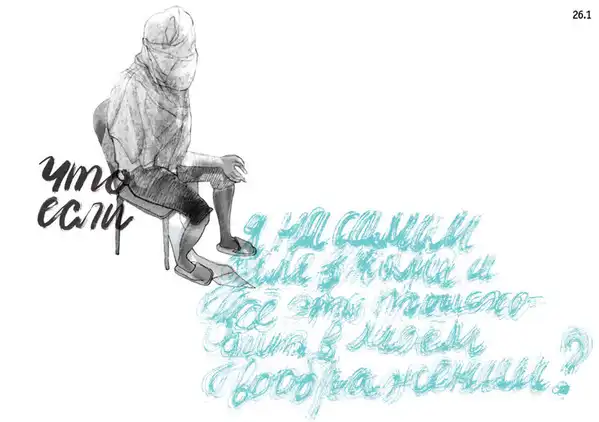 26.1
что
если
я на самом
деле в коме и
всё это происхо-
дит в моем
воображении?